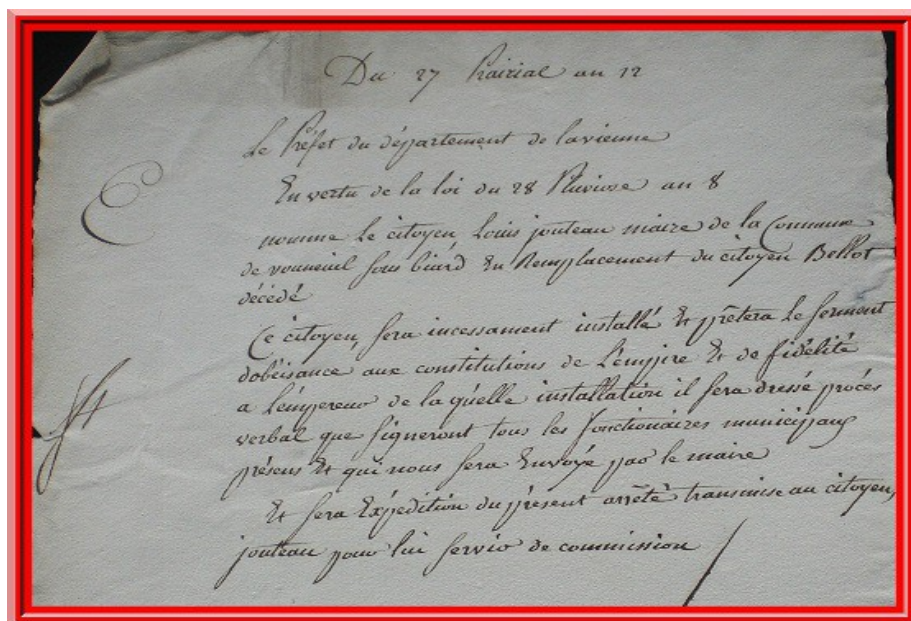 Du 27 Prairial an 12
Le Préfet du département de lavienne
En vertu de la loi du 28 Pluviose an 8
nomme Le citoyen Louis jouteau maire de la Commune
de vouneuil sous biard En Remplacement du citoyen Bellot
décédé
Ce citoyen sera incessament installé Et prêtera Le serment
dobéisance aux constitutions de L'empire Et de fidélité
a L'empereur de la quelle installation il sera dressé procés
verbal que signeront tous les fonctionaires municipaux
présens Et qui nous sera Envoyé par le maire
Et sera Expédition du présent arrêté transmise au citoyen
jouteau pour lui servir de commission